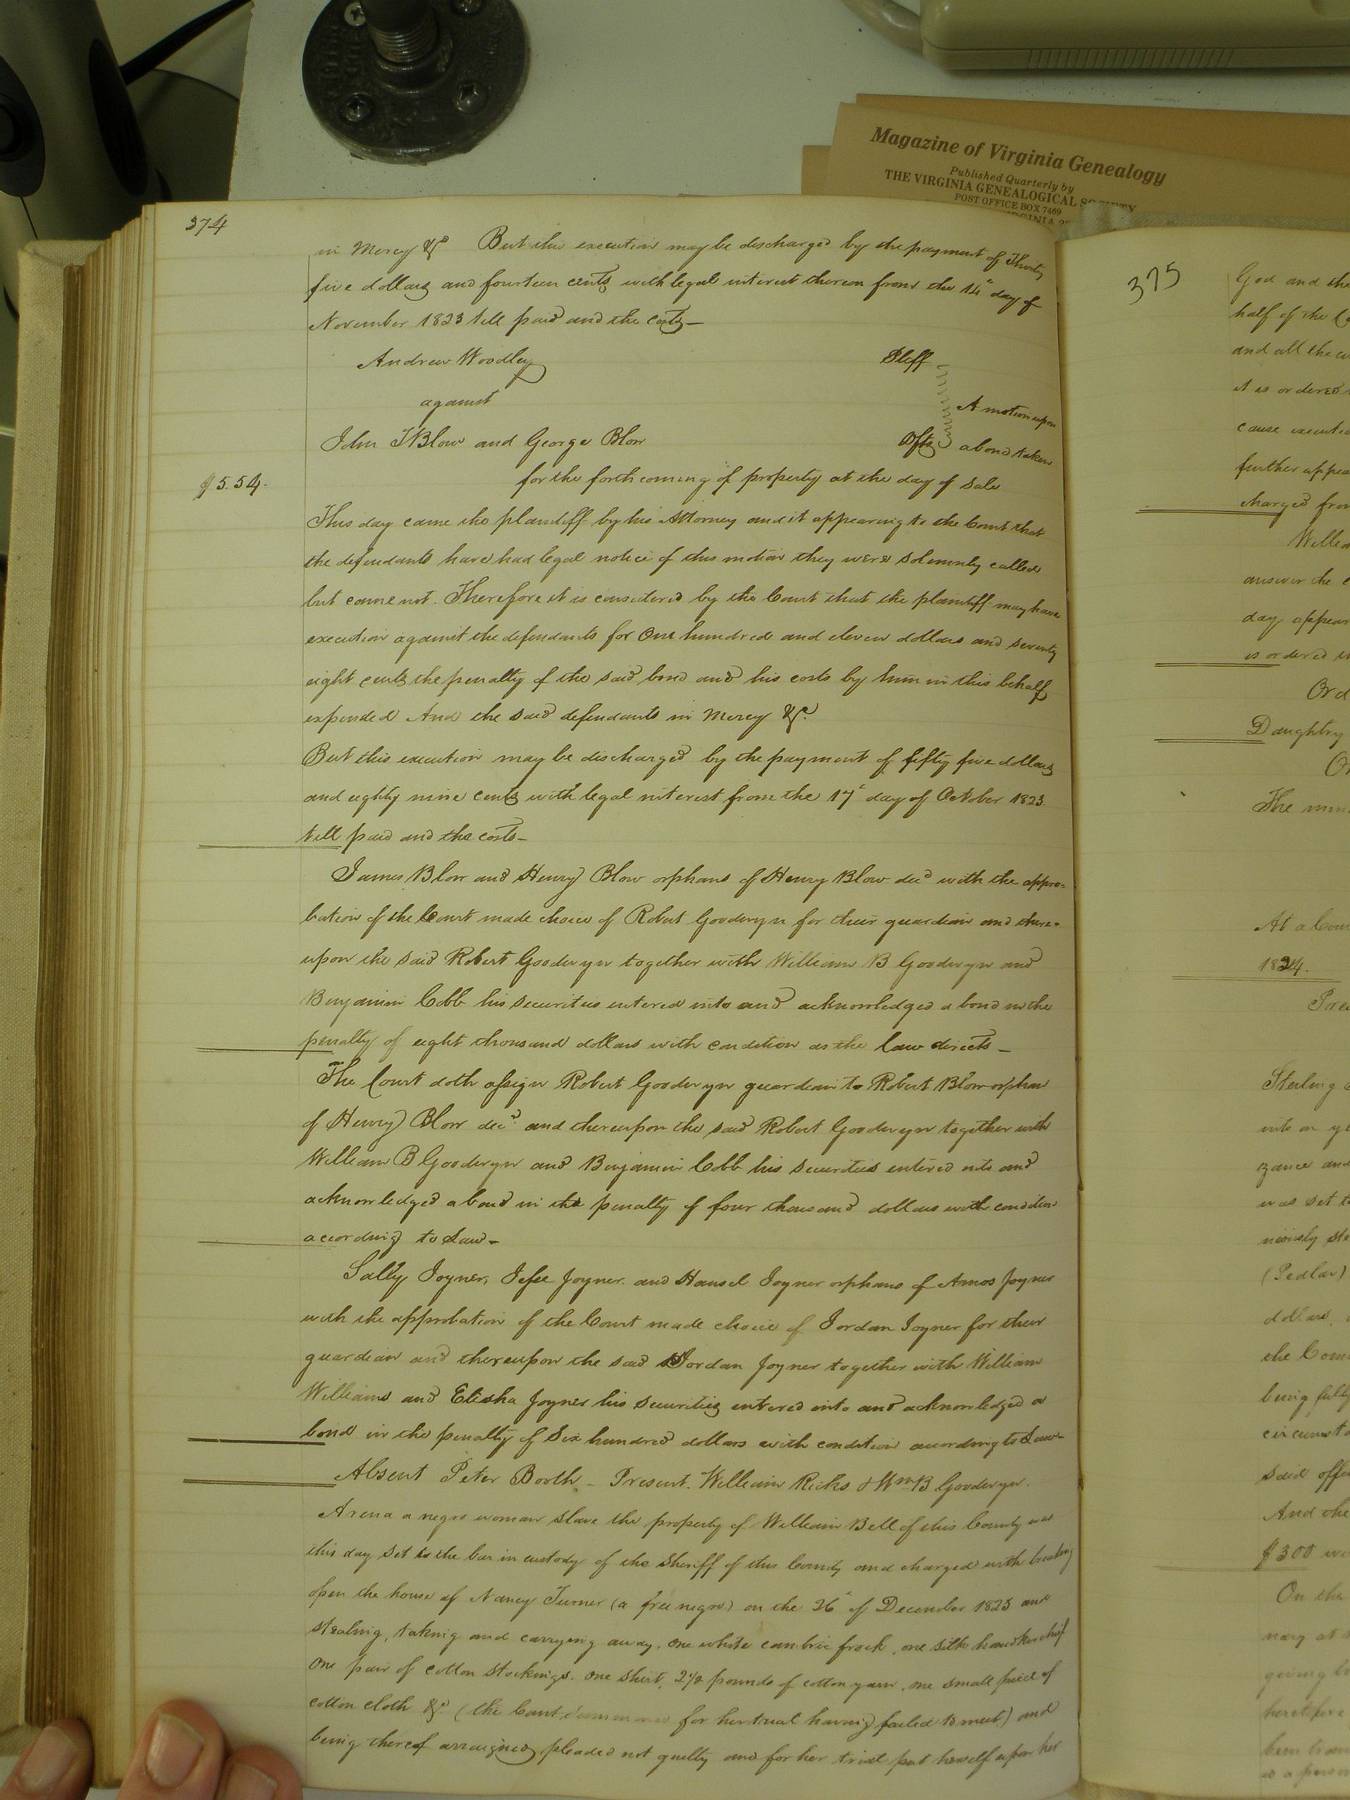 Magazine of Virginia Genealogy
Published Quarterly by
THE VIRGINIA GENEALOGICAL SOCIETY
POST OFFICE BOX 7469
374
in Mercy &c But this execution may be discharged by the payment of Thirty
five dollars and fourteen cents with legal interest thereon from the 14th day of
November 1823 till paid and the costs—
Andrew Woodley Pltff
against A motion upon
John T Blow and George Blow Dfts a bond taken
$5.54. for the forthcoming of property at the day of sale
This day came the plaintiff by his Attorney and it appearing to the Court that
the defendants have had legal notice of this motion they were solemnly called
but came not. Therefore it is considered by the Court that the plaintiff may have
execution against the defendants for One hundred and eleven dollars and seventy
eight cents the penalty of the said bond and his costs by him in this behalf
expended And the said defendants in Mercy &c.
But this execution may be discharged by the payment of fifty five dollars
and eighty nine cents with legal interest from the 17th day of October 1823
till paid and the costs—
James Blow and Henry Blow orphans of Henry Blow decd with the appro-
bation of the Court made choice of Robert Goodwyn for their guardian and there-
upon the said Robert Goodwyn together with William B Goodwyn and
Benjamin Cobb his securities entered into and acknowledged a bond in the
penalty of eight thousand dollars with condition as the law directs—
The Court doth assign Robert Goodwyn guardian to Robert Blow orphan
of Henry Blow decd and thereupon the said Robert Goodwyn together with
William B Goodwyn and Benjamin Cobb his securities entered into and
acknowledged a bond in the penalty of four thousand dollars with condition
according to Law—
Sally Joyner, Jesse Joyner and Hansel Joyner orphans of Amos Joyner
with the approbation of the Court made choice of Jordan Joyner for their
guardian and thereupon the said Jordan Joyner together with William
Williams and Elisha Joyner his securities entered into and acknowledged a
bond in the penalty of Six hundred dollars with condition according to Law
Absent Peter Booth – Present. William Ricks & Wm B Goodwyn.
Arena a negro woman slave the property of William Bell of this County was
this day set to the bar in custody of the Sheriff of this County and charged with breaking
open the house of Nancy Turner (a free negro) on the 26th of December 1823 and
stealing, taking and carrying away, one white cambric frock, one silk handkerchief
One pair of cotton stockings, one shirt, 2½ pounds of cotton yarn, one small piece of
cotton cloth &c (the Court summoned for her trial having failed to meet) and
being thereof arraigned pleaded not guilty and for her trial put herself upon her
375
God and the
half of the
and all the
it is ordered
cause
further appea
charged from
William
answer the
day appear
is ordered
Ord
Daughtry
The min
At a Cour
1824.
Pres
Sterling
into an
zance and
was set to
(Pedlar)
dollars,
the Com
being fully
circumsta
said offe
And the
$300
On the
giving
heretofore
been
as a person